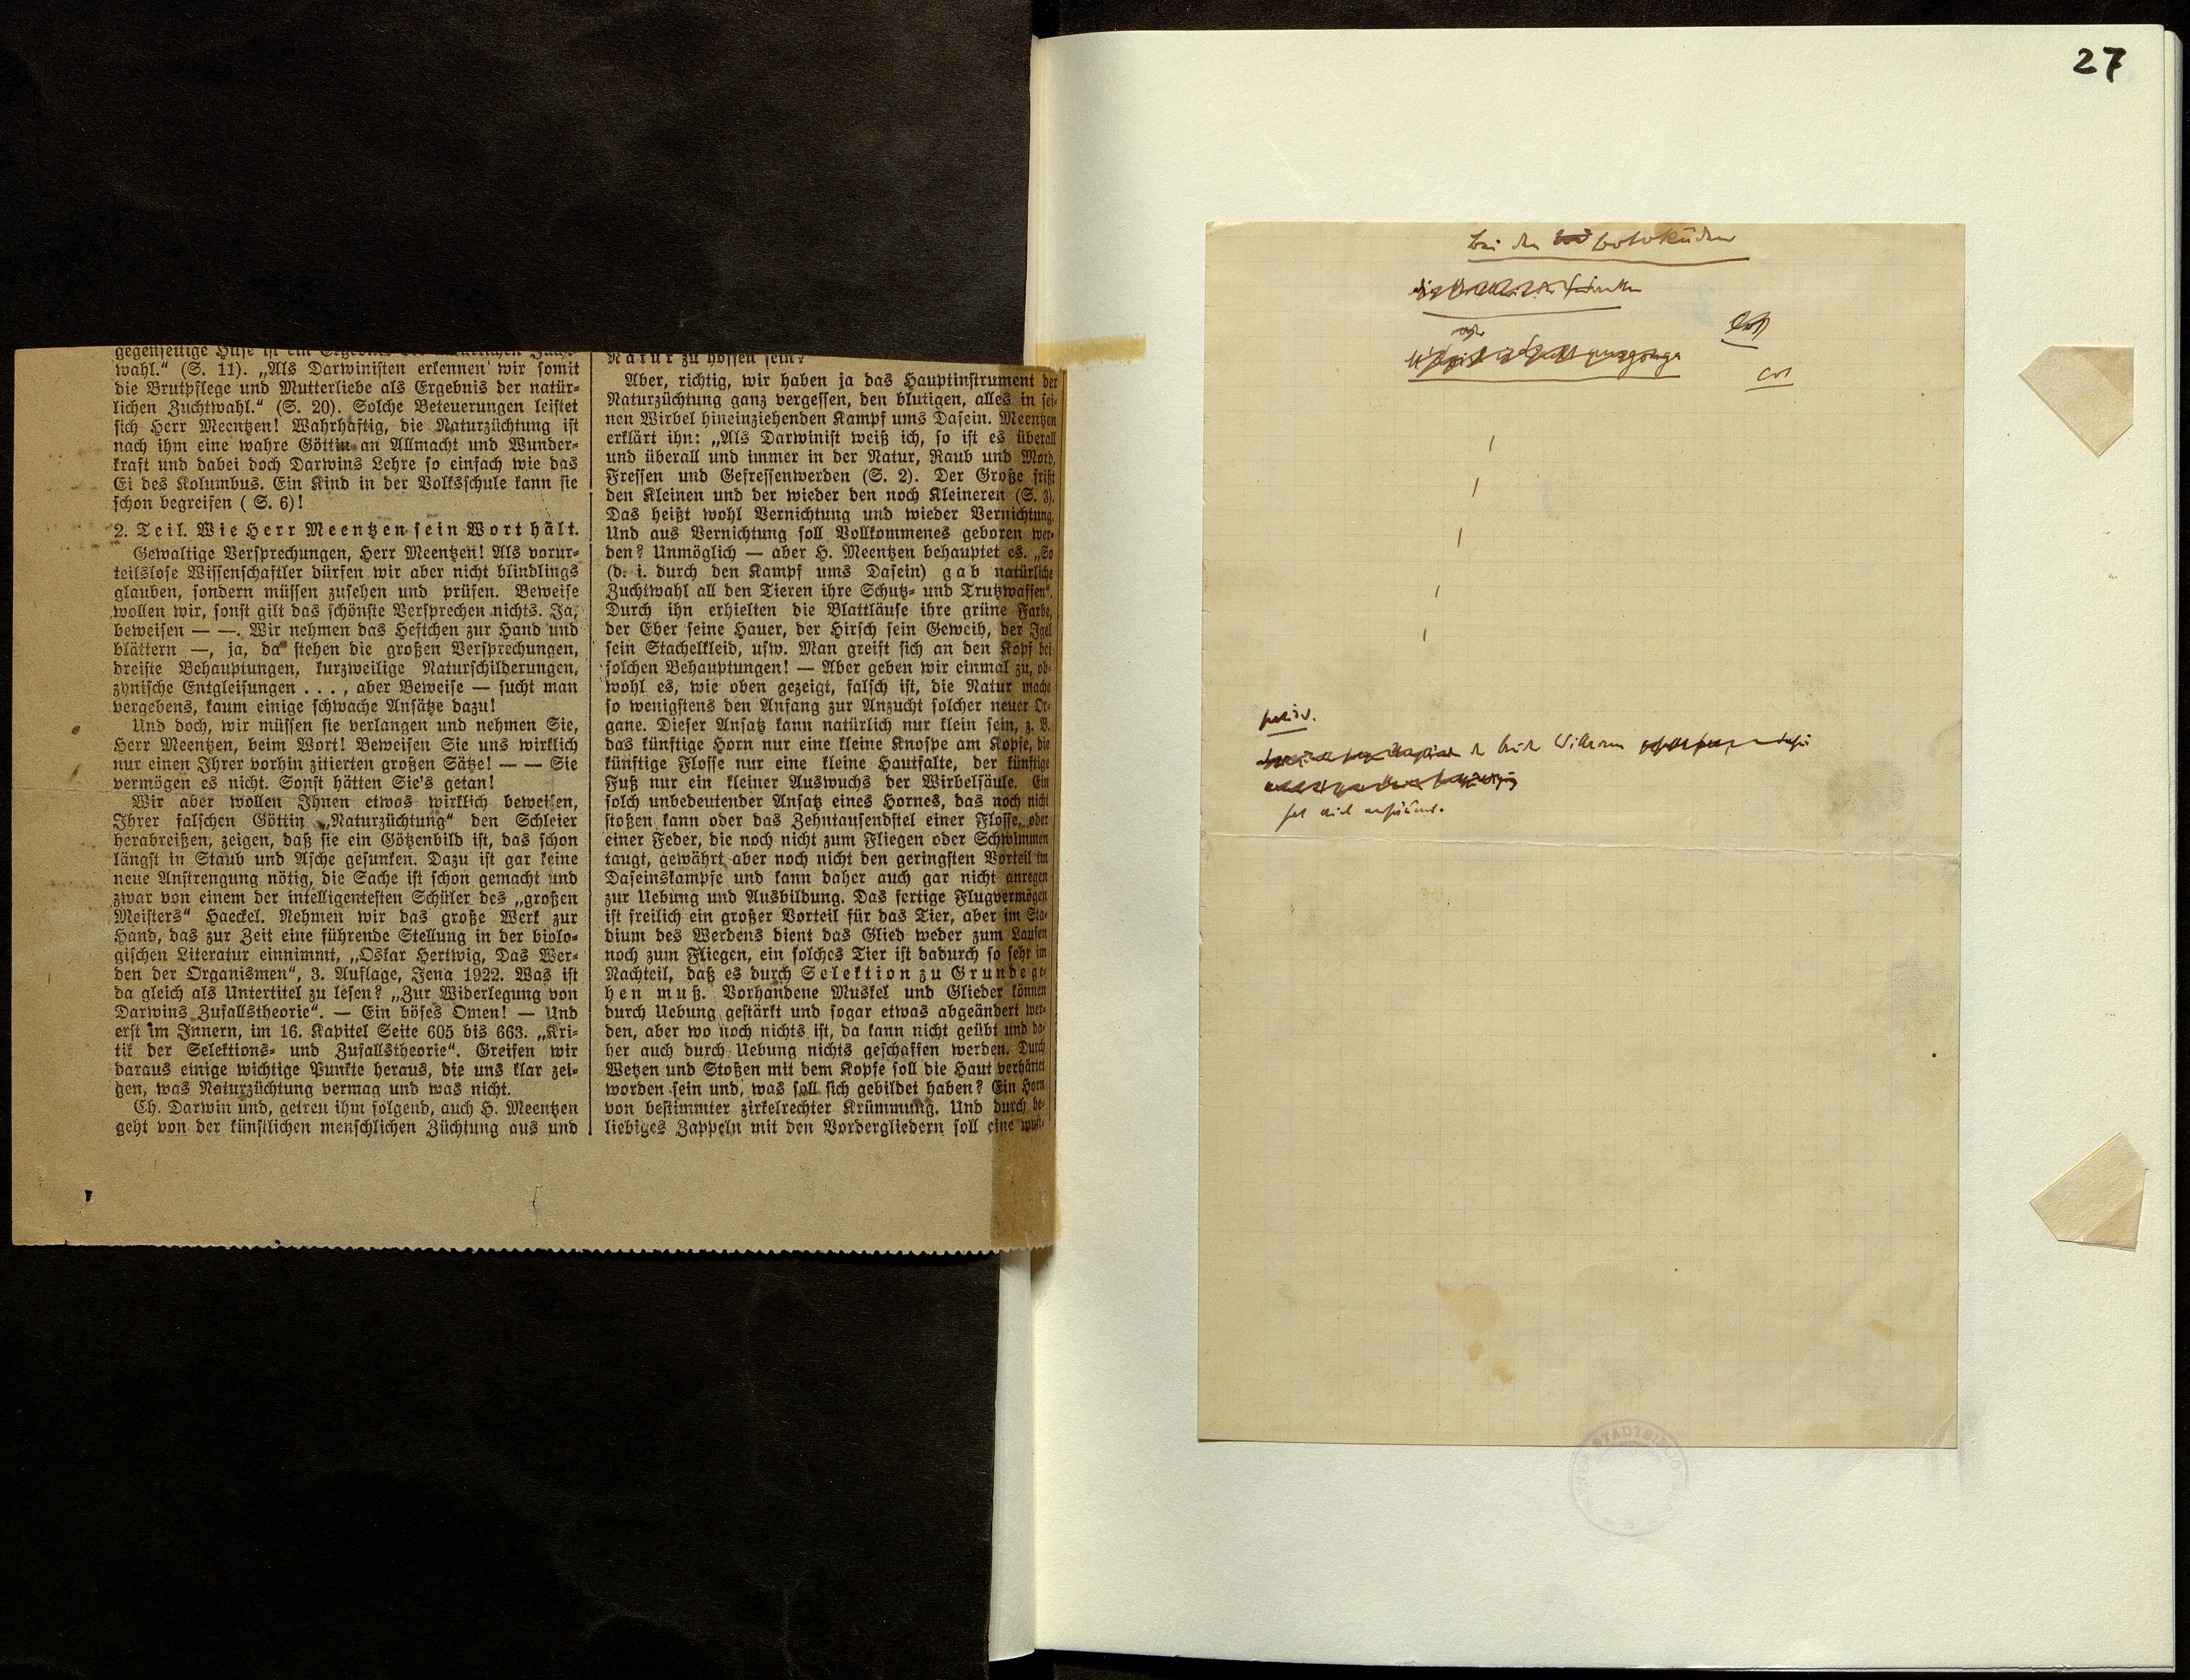 wahl.“ (S. 11). „Als Darwinisten erkennen wir somit
die Brutpflege und Mutterliebe als Ergebnis der natür-
lichen Zuchtwahl.“ (S. 20). Solche Beteuerungen leistet
sich Herr Meentzen! Wahrhaftig, die Naturzüchtung ist
nach ihm eine wahre Göttin an Allmacht und Wunder-
kraft und dabei doch Darwins Lehre so einfach wie das
Ei des Kolumbus. Ein Kind in der Volksschule kann sie
schon begreifen ( S. 6)!
2. Teil. Wie Herr Meentzen sein Wort hält.
Gewaltige Versprechungen, Herr Meentzen! Als vorur-
teilslose Wissenschaftler dürfen wir aber nicht blindlings
glauben, sondern müssen zusehen und prüfen. Beweise
wollen wir, sonst gilt das schönste Versprechen nichts. Ja,
beweisen — —. Wir nehmen das Heftchen zur Hand und
blättern —, ja, da stehen die großen Versprechungen,
dreiste Behauptungen, kurzweilige Naturschilderungen,
zynische Entgleisungen . . . , aber Beweise — sucht man
vergebens, kaum einige schwache Ansätze dazu!
Und doch, wir müssen sie verlangen und nehmen Sie,
Herr Meentzen, beim Wort! Beweisen Sie uns wirklich
nur einen Ihrer vorhin zitierten großen Sätze! — — Sie
vermögen es nicht. Sonst hätten Sie's getan!
Wir aber wollen Ihnen etwas wirklich beweisen,
Ihrer falschen Göttin „Naturzüchtung“ den Schleier
herabreißen, zeigen, daß sie ein Götzenbild ist, das schon
längst in Staub und Asche gesunken. Dazu ist gar keine
neue Anstrengung nötig, die Sache ist schon gemacht und
zwar von einem der intelligentesten Schüler des „großen
Meisters“ Haeckel. Nehmen wir das große Werk zur
Hand, das zur Zeit eine führende Stellung in der biolo-
gischen Literatur einnimmt, „Oskar Hertwig, Das Wer-
den der Organismen“, 3. Auflage, Jena 1922. Was ist
da gleich als Untertitel zu lesen? „Zur Widerlegung von
Darwins Zufallstheorie“. — Ein böses Omen! — Und
erst im Innern, im 16. Kapitel Seite 605 bis 663. „Kri-
tik der Selektions- und Zufallstheorie“. Greifen wir
daraus einige wichtige Punkte heraus, die uns klar zei-
gen, was Naturzüchtung vermag und was nicht.
Ch. Darwin und, getreu ihm folgend, auch H. Meentzen
geht von der künstlichen menschlichen Züchtung aus und
Natur zu hoffen sein?
Aber, richtig, wir haben ja das Hauptinstrument der
Naturzüchtung ganz vergessen, den blutigen, alles in sei-
nen Wirbel hineinziehenden Kampf ums Dasein. Meentzen
erklärt ihn: „Als Darwinist weiß ich, so ist es überall
und überall und immer in der Natur, Raub und Mord,
Fressen und Gefressenwerden (S. 2). Der Große frißt
den Kleinen und der wieder den noch Kleineren (S. 3).
Das heißt wohl Vernichtung und wieder Vernichtung.
Und aus Vernichtung soll Vollkommenes geboren wer-
den? Unmöglich — aber H. Meentzen behauptet es. „So
(d. i. durch den Kampf ums Dasein) gab natürliche
Zuchtwahl all den Tieren ihre Schutz- und Trutzwaffen“.
Durch ihn erhielten die Blattläuse ihre grüne Farbe,
der Eber seine Hauer, der Hirsch sein Geweih, der Igel
sein Stachelkleid, usw. Man greift sich an den Kopf bei
solchen Behauptungen! — Aber geben wir einmal zu, ob-
wohl es, wie oben gezeigt, falsch ist, die Natur mache
so wenigstens den Anfang zur Anzucht solcher neuer Or-
gane. Dieser Ansatz kann natürlich nur klein sein, z. B.
das künftige Horn nur eine kleine Knospe am Kopfe, die
künftige Flosse nur eine kleine Hautfalte, der künftige
Fuß nur ein kleiner Auswuchs der Wirbelsäule. Ein
solch unbedeutender Ansatz eines Hornes, das noch nicht
stoßen kann oder das Zehntausendstel einer Flosse, oder
einer Feder, die noch nicht zum Fliegen oder Schwimmen
taugt, gewährt aber noch nicht den geringsten Vorteil im
Daseinskampfe und kann daher auch gar nicht anregen
zur Uebung und Ausbildung. Das fertige Flugvermögen
ist freilich ein großer Vorteil für das Tier, aber im Sta-
dium des Werdens dient das Glied weder zum Laufen
noch zum Fliegen, ein solches Tier ist dadurch so sehr im
Nachteil, daß es durch Selektion zu Grunde ge-
hen muß. Vorhandene Muskel und Glieder können
durch Uebung gestärkt und sogar etwas abgeändert wer-
den, aber wo noch nichts ist, da kann nicht geübt und da-
her auch durch Uebung nichts geschaffen werden. Durch
Wetzen und Stoßen mit dem Kopfe soll die Haut verhärtet
worden sein und, was soll sich gebildet haben? Ein Horn
von bestimmter zirkelrechter Krümmung. Und durch be-
liebiges Zappeln mit den Vordergliedern soll eine
27
Bei den Botokuden